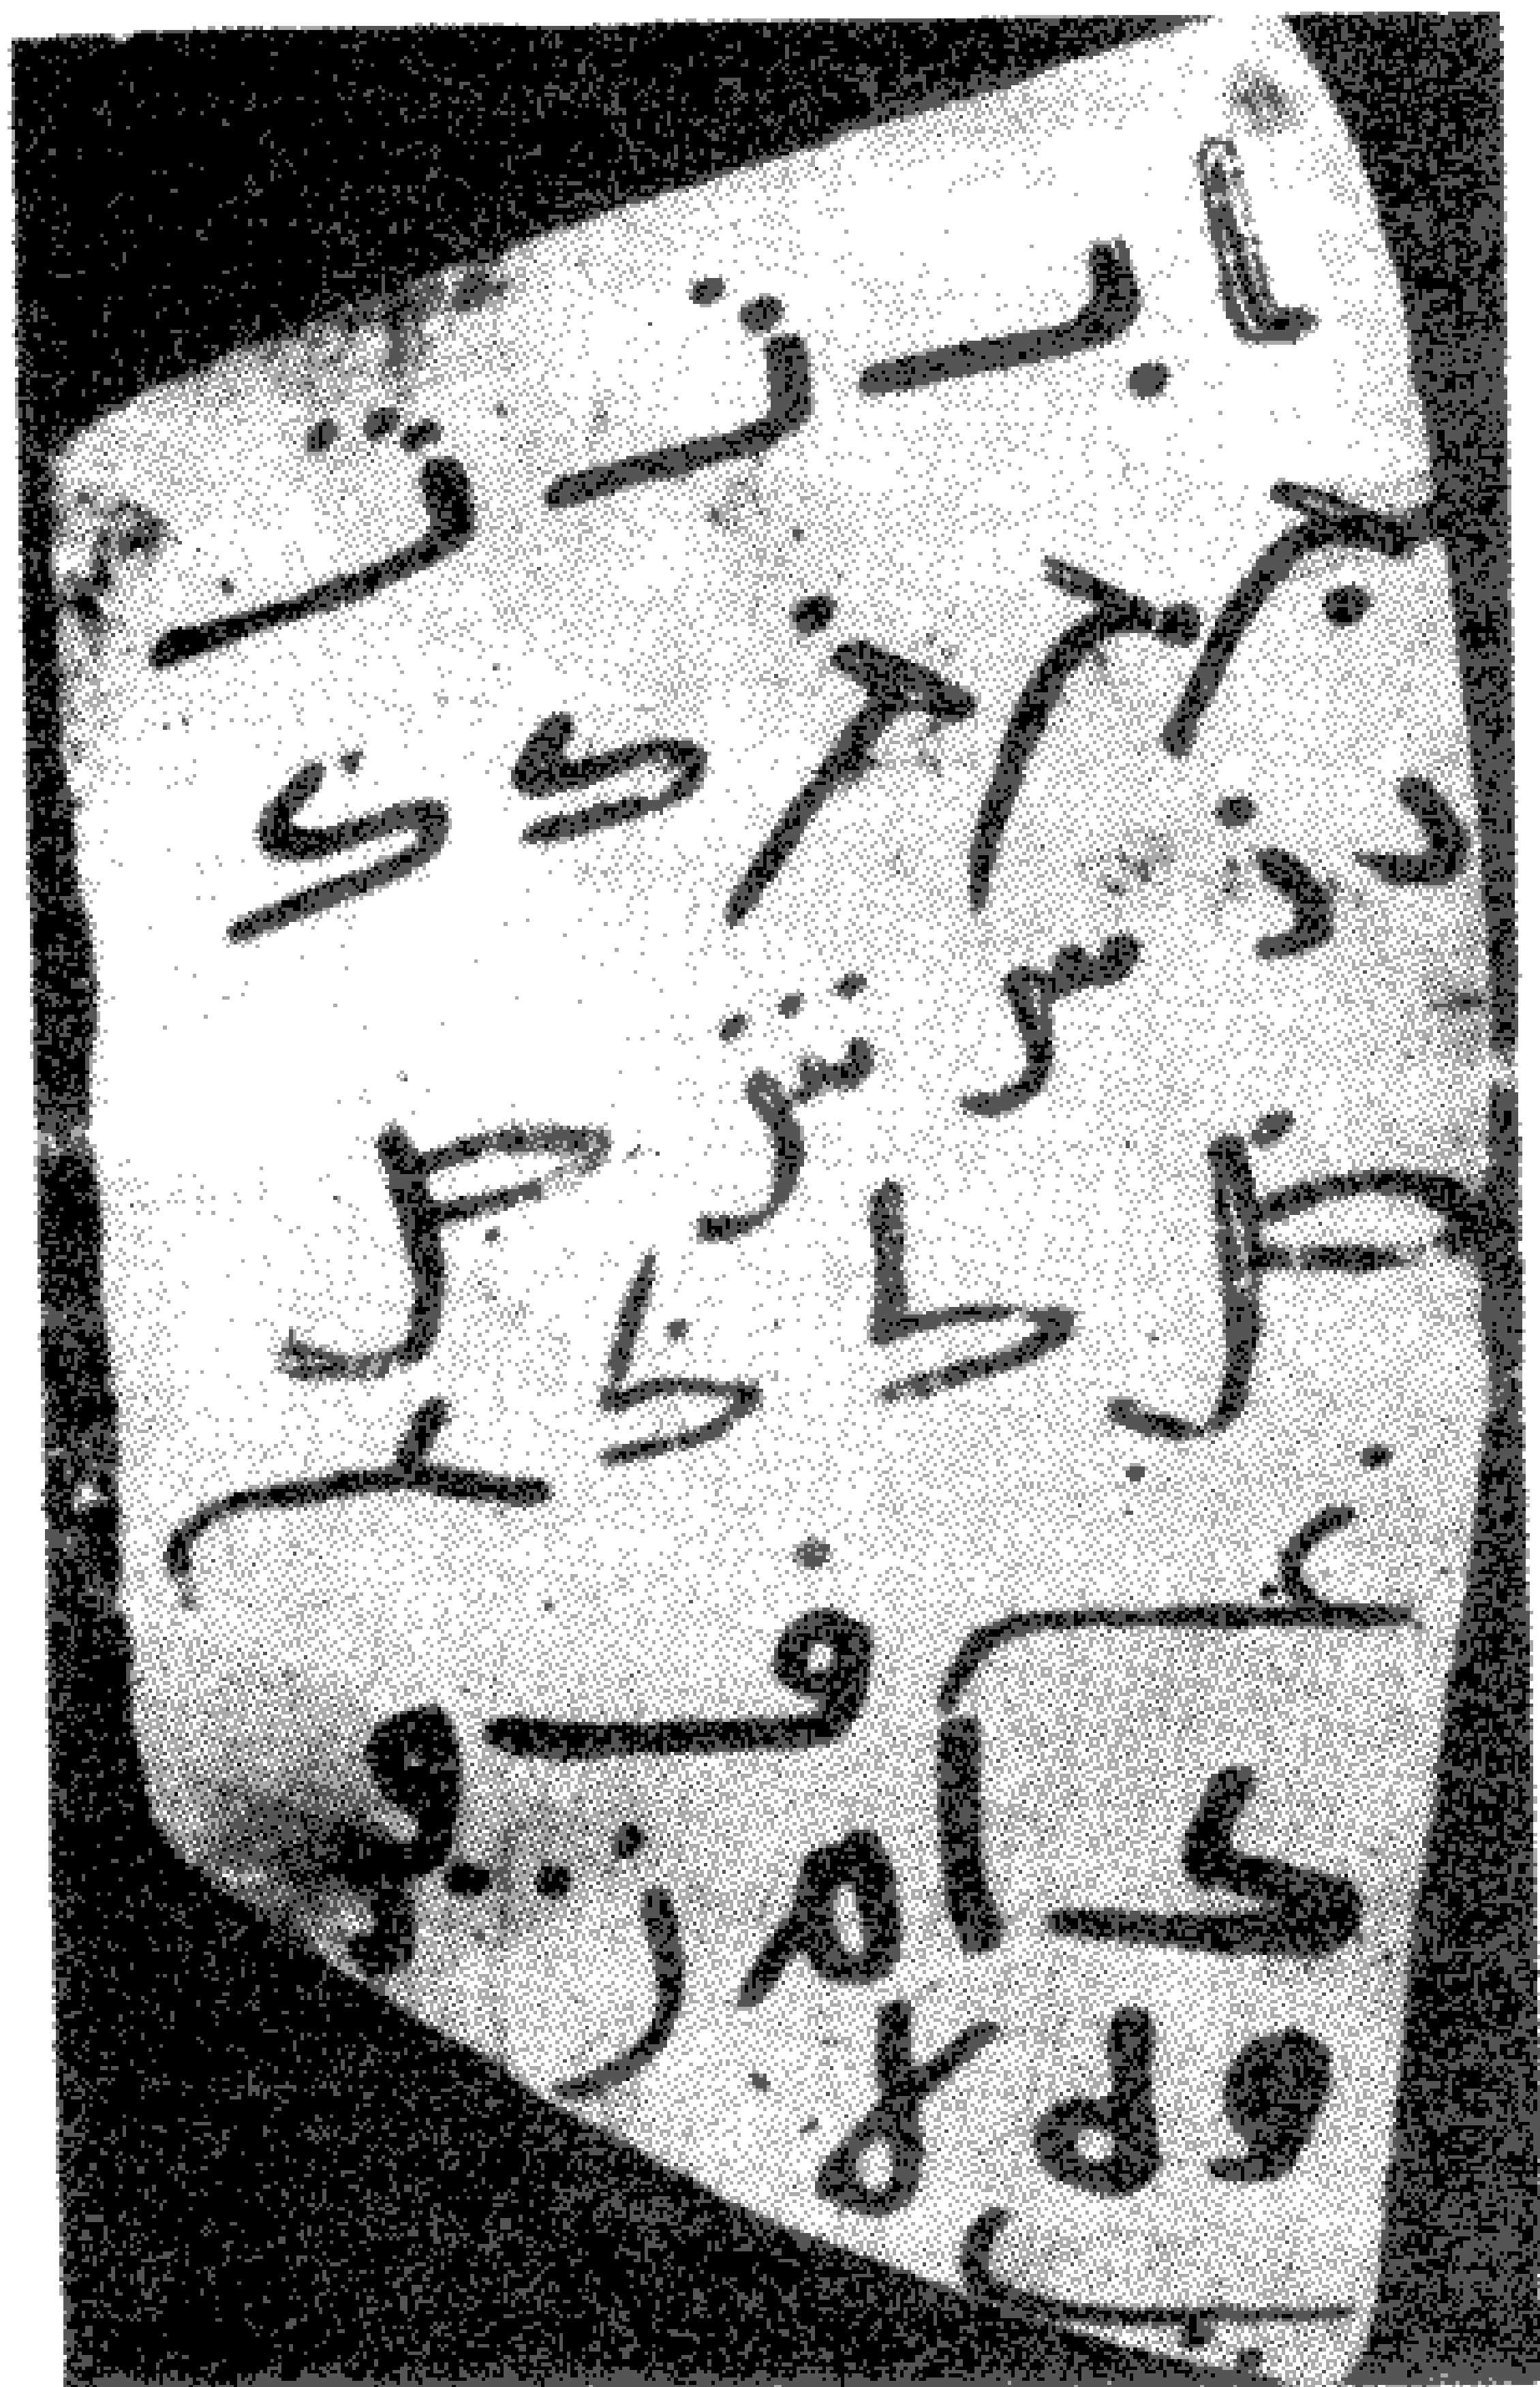 ا ب ت ث
ج ح خ د ذ
ر ز س ش ص
ض ط ظ ع
غ ف ق
ك ل م ن
و ه لا ي